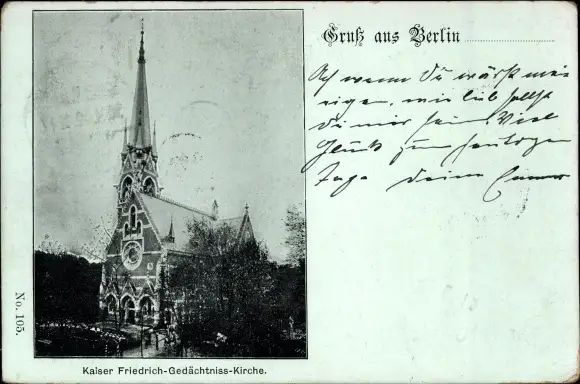 Gruß aus Berlin
Ach wenn du wärst mein
eigen, wie lieb sollst
du mir sein. Viel
Glück zum heutigen
Tage deine
No. 105.
Kaiser Friedrich-Gedächtniss-Kirche.